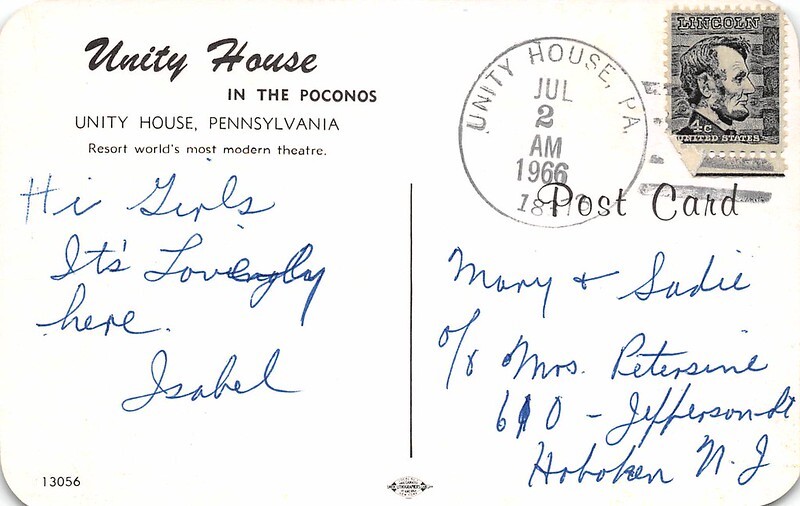 Unity House
IN THE POCONOS
UNITY HOUSE, PENNSYLVANIA
Resort world's most modern theatre.
UNITY HOUSE, PA.
JUL
2
AM
1966
LINCOLN
4c
UNITED STATES
Post Card
Hi Girls
It's Lovely
here.
Isabel
Mary & Sadie
Mrs. Petersine
610 - Jefferson St
Hoboken N. J
13056